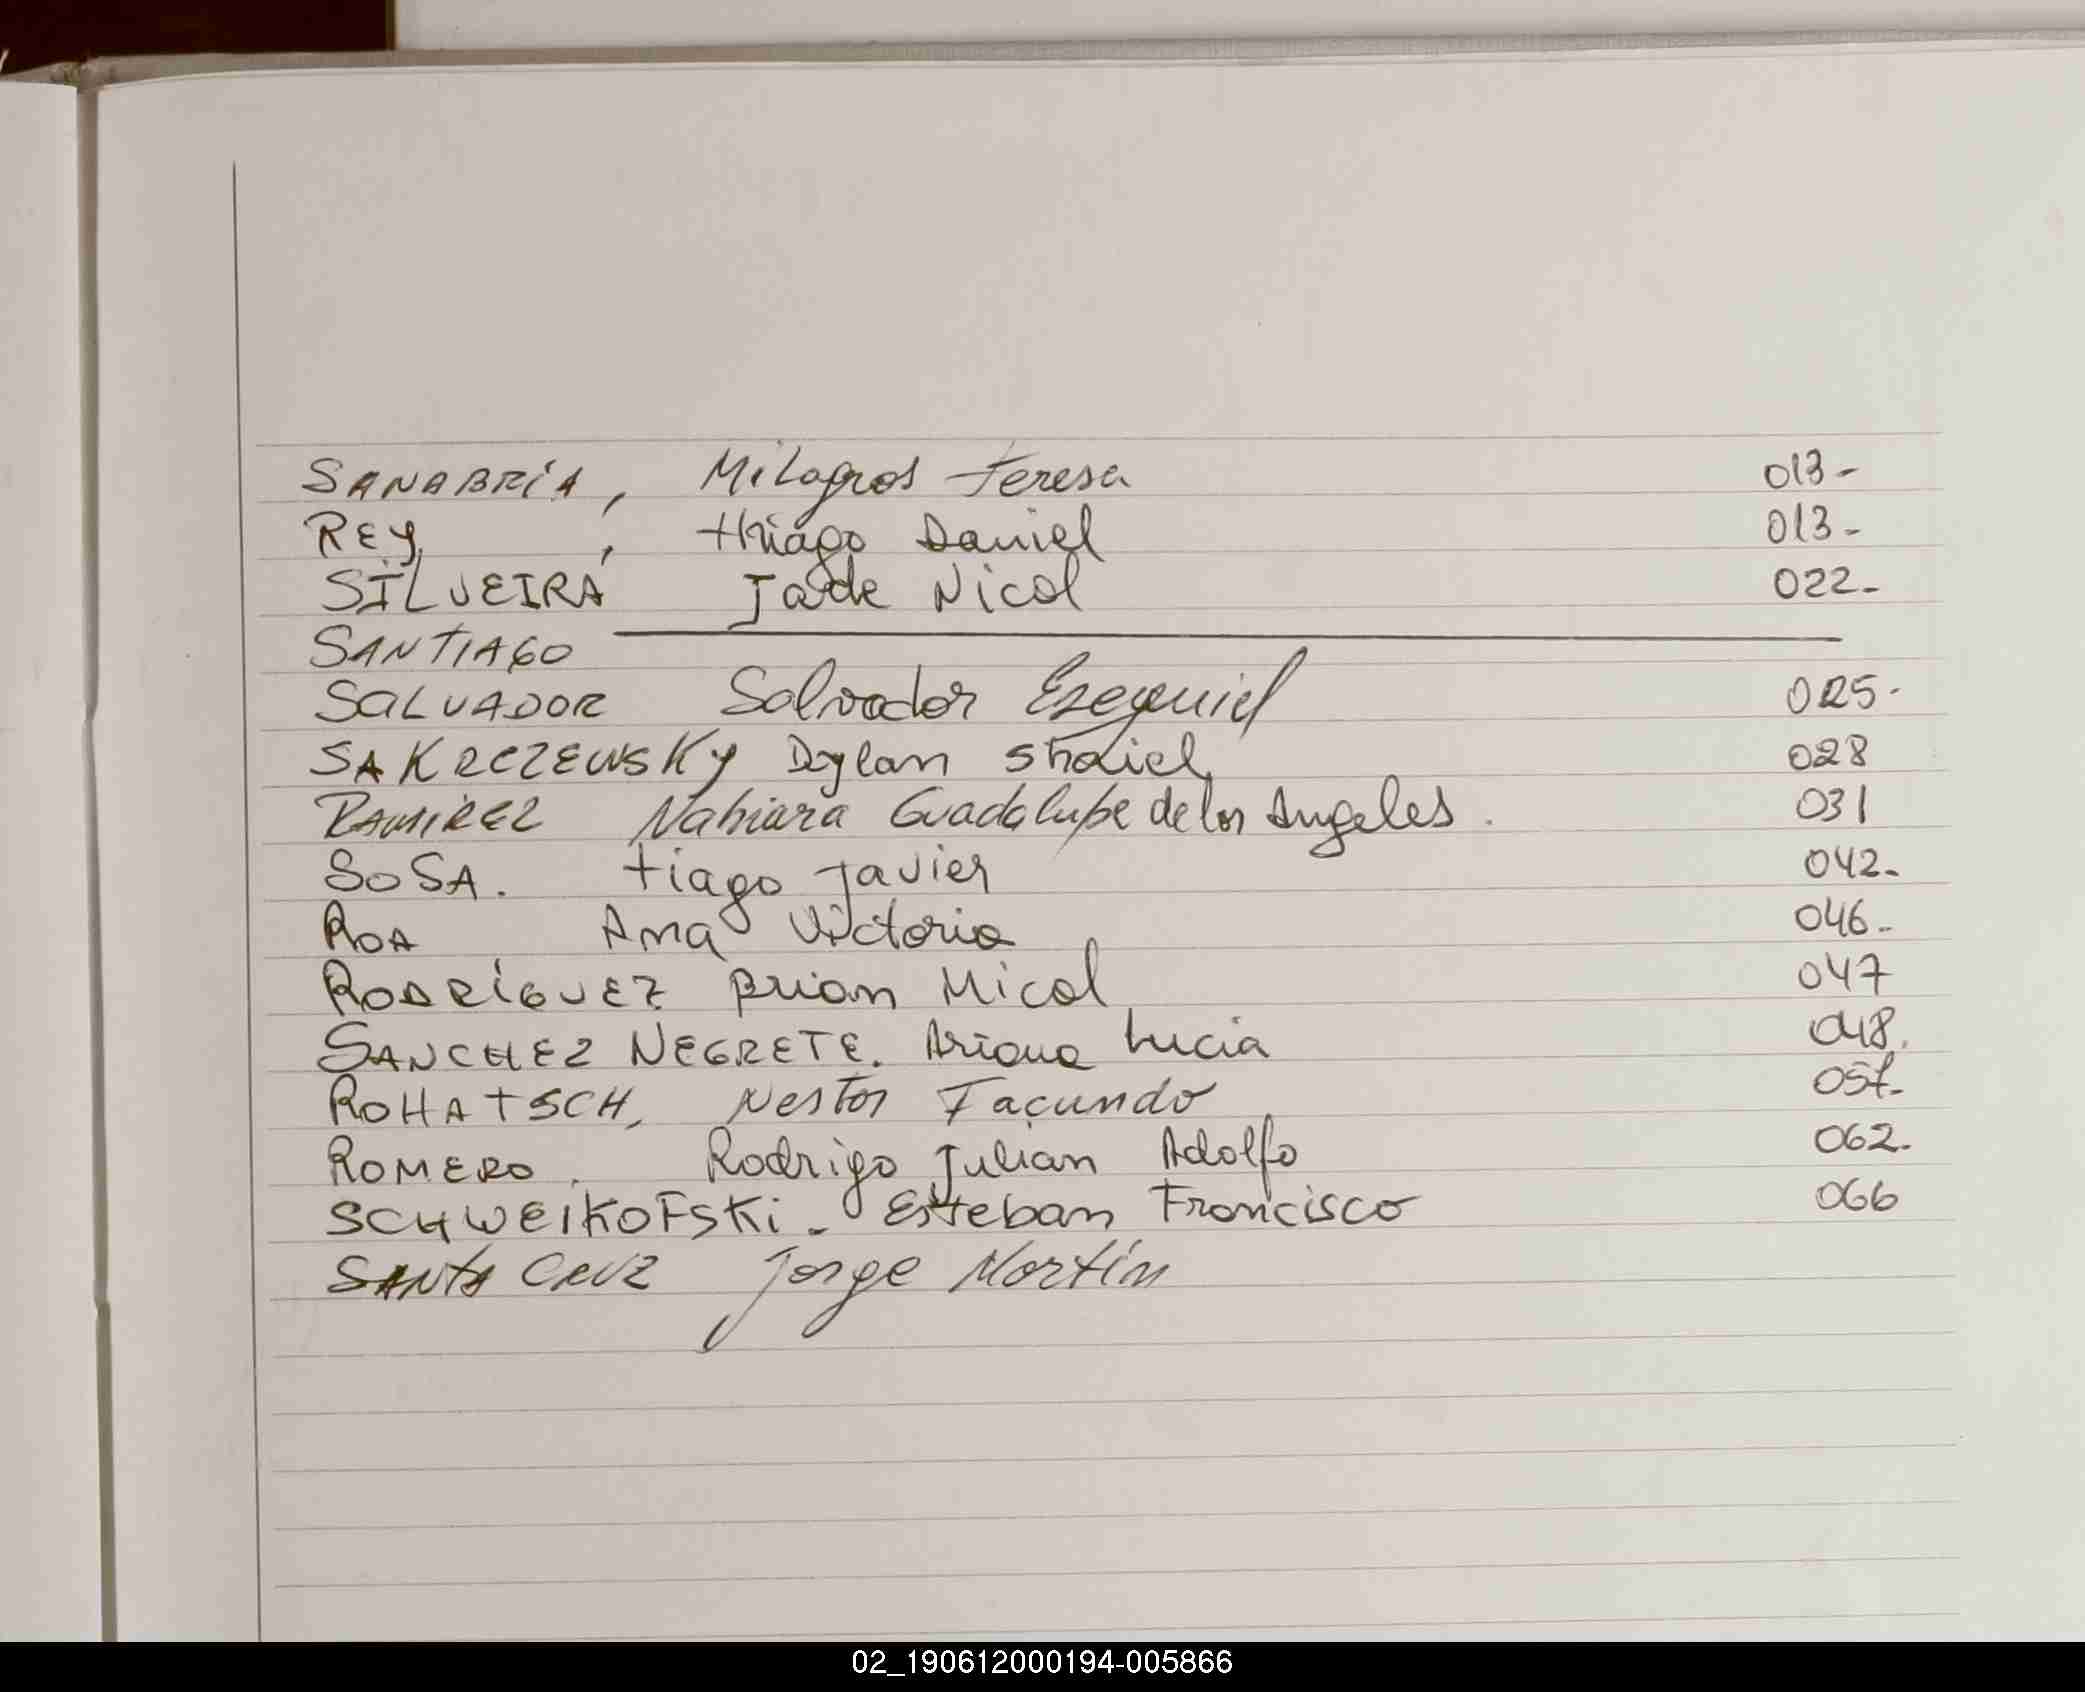 SANABRíA, Milagros Teresa 013-
REY, thiago Daniel 013-
SILVEIRA Jade Nicol 022-
SANTIAGO
SALVADOR Salvador Ezequiel 025-
SAKRCZEWSKY Dylan Shaiel 028
RAMIREZ Nahiara Guadalupe de los Angeles. 031
SOSA. tiago Javier 042-
ROA Ana Victoria 046-
RODRíGUEZ Brian Micol 047
SANCHEZ NEGRETE. Ariana Lucia 048.
ROHATSCH, Nestor Facundo 057-
ROMERO. Rodrigo Julian Adolfo 062-
SCHWEIKOFSKi- Esteban Francisco 066
SANTA CRUZ Jorge Martín
02_190612000194-005866